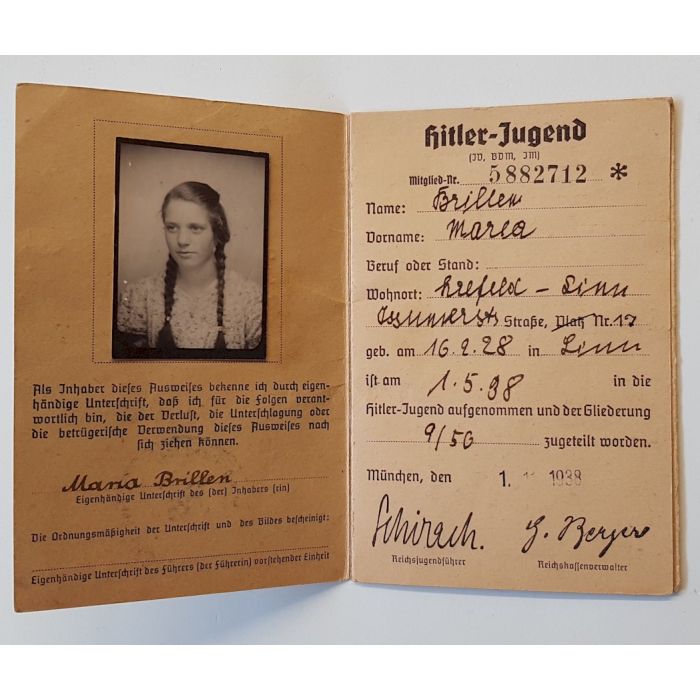 Als Inhaber dieses Ausweises bekenne ich durch eigen-
händige Unterschrift, daß ich für die Folgen verant-
wortlich bin, die der Verlust, die Unterschlagung oder
die betrügerische Verwendung dieses Ausweises nach
sich ziehen können.
Maria Brillen
Eigenhändige Unterschrift des (der) Inhabers (rin)
Die Ordnungsmäßigkeit der Unterschrift und des Bildes bescheinigt:
Eigenhändige Unterschrift des Führers (der Führerin) vorstehender Einheit
Hitler-Jugend
(JV, BDM, JM)
Mitglied-Nr. 5882712 *
Name: Brillen
Vorname: Maria
Beruf oder Stand:
Wohnort: Krefeld - Linn
Straße, Platz Nr. 17
geb. am 16.2.28 in Linn
ist am 1.5.38 in die
Hitler-Jugend aufgenommen und der Gliederung
9/56 zugeteilt worden.
München, den 1. 1938
Schirach. Berger
Reichsjugendführer Reichskassenverwalter